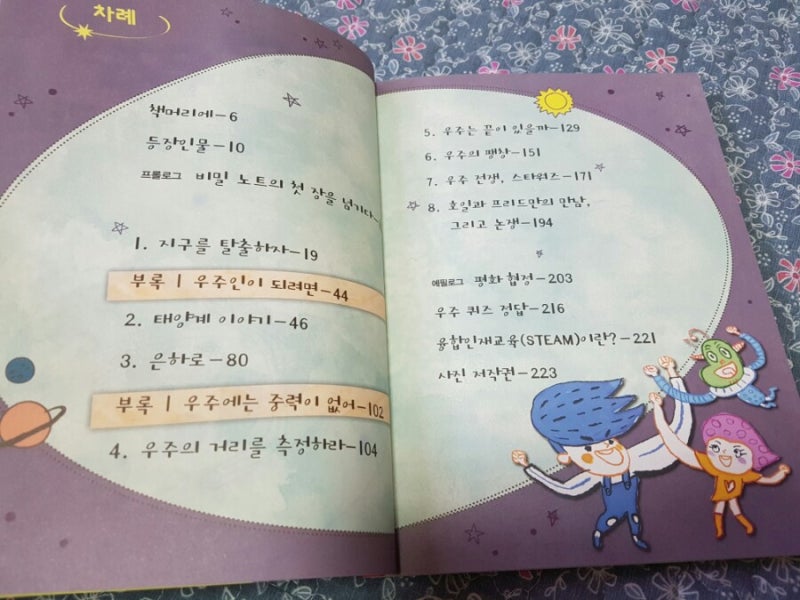 차례
책머리에-6
등장인물-10
프롤로그 비밀 노트의 첫 장을 넘기다-
1. 지구를 탈출하자-19
부록 | 우주인이 되려면-44
2. 태양계 이야기-46
3. 은하로-80
부록 | 우주에는 중력이 없어-102
4. 우주의 거리를 측정하라-104
5. 우주는 끝이 있을까-129
6. 우주의 팽창-151
7. 우주 전쟁, 스타워즈-171
8. 호일과 프리드만의 만남,
그리고 논쟁-194
에필로그 평화 협정-203
우주 퀴즈 정답-216
융합인재교육(STEAM)이란?-221
사진 저작권-223